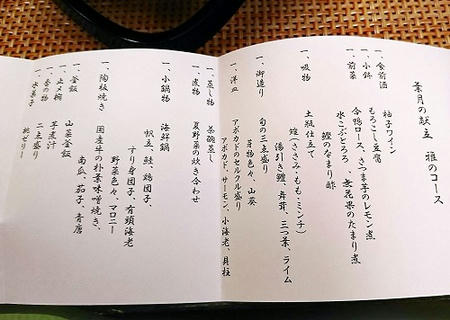 葉月の献立 雅のコース
一、食前酒 柚子ワイン
一、小鉢 もろこし豆腐
一、前菜 合鴨ロース、さつま芋のレモン煮
水こぶとろろ、無花果のたまり煮
鰹のなまり酢
一、吸物 土瓶仕立て
鱧(ささみ・もも・ミンチ)
湯引き鱧、舞茸、三つ葉、ライム
一、御造り 旬の三点盛り
芽物色々、山葵
一、洋皿 アボカドのセルクル盛り
アボカド、サーモン、小海老、貝柱
一、蒸し物 茶碗蒸し
一、煮物 夏野菜の炊き合わせ
一、小鍋物 海鮮鍋
帆立、鮭、鶏団子、
すり身団子、有頭海老
野菜色々、マロニー
一、陶板焼き 国産牛の朴葉味噌焼き、
南瓜、茄子、青唐
一、釜飯 山菜釜飯
一、止メ椀 芋煮汁
一、香の物 二点盛り
一、水菓子 桃ゼリー